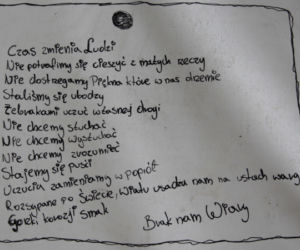 Czas zmienia Ludzi
Nie potrafimy się cieszyć z małych rzeczy
Nie dostrzegamy Piękna które w nas drzemie
Staliśmy się ubodzy
Żebrakami uczuć własnej drogi
Nie chcemy słuchać
Nie chcemy wysłuchać
Nie chcemy zrozumieć
Stajemy się puści
Uczucia zamieniamy w popiół
Rozsypane po Świecie, Wiatr osadza nam na ustach
Gorzki korozji smak
Brak nam Wiary